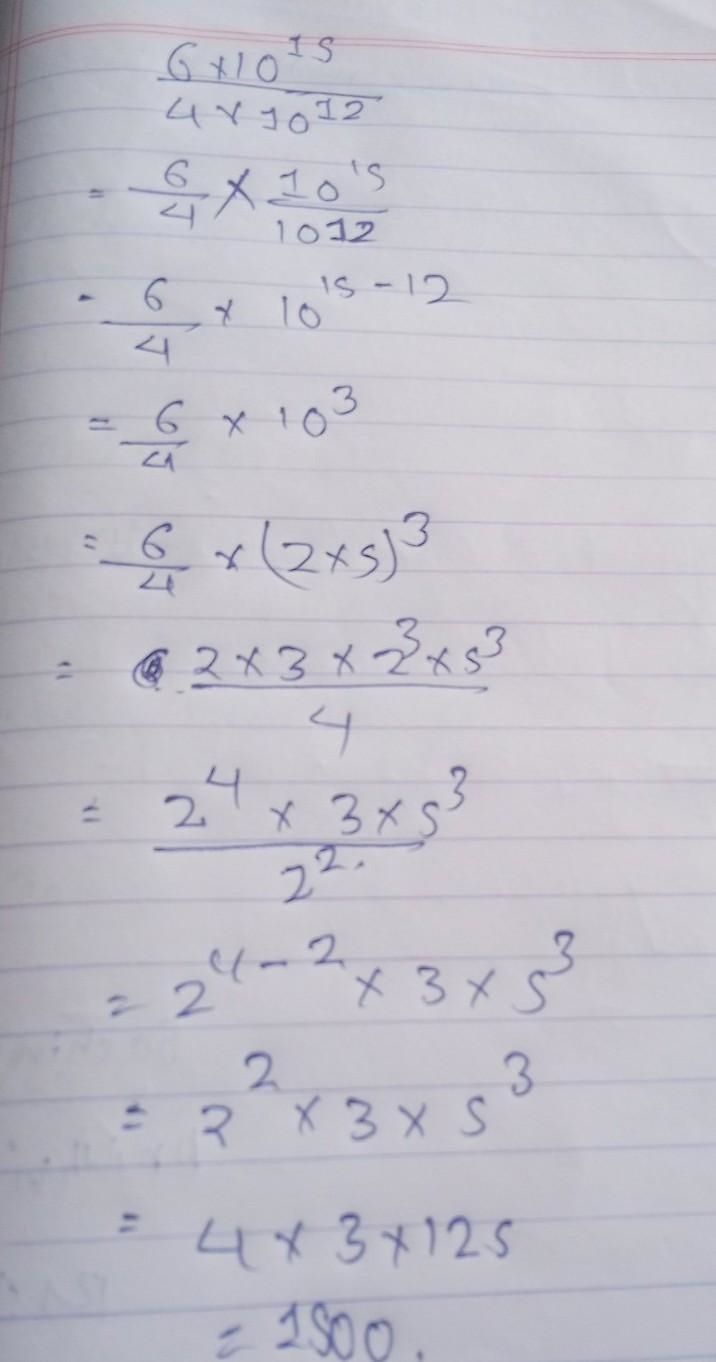 6×10^15 / 4×10^12
= 6/4 × 10^15/1012
= 6/4 × 10^15-12
= 6/4 × 10^3
= 6/4 × (2×5)^3
= 2×3×2^3×5^3 / 4
= 2^4 × 3×5^3 / 2^2.
= 2^4-2 × 3×5^3
= 2^2 × 3×5^3
= 4×3×125
= 1500.